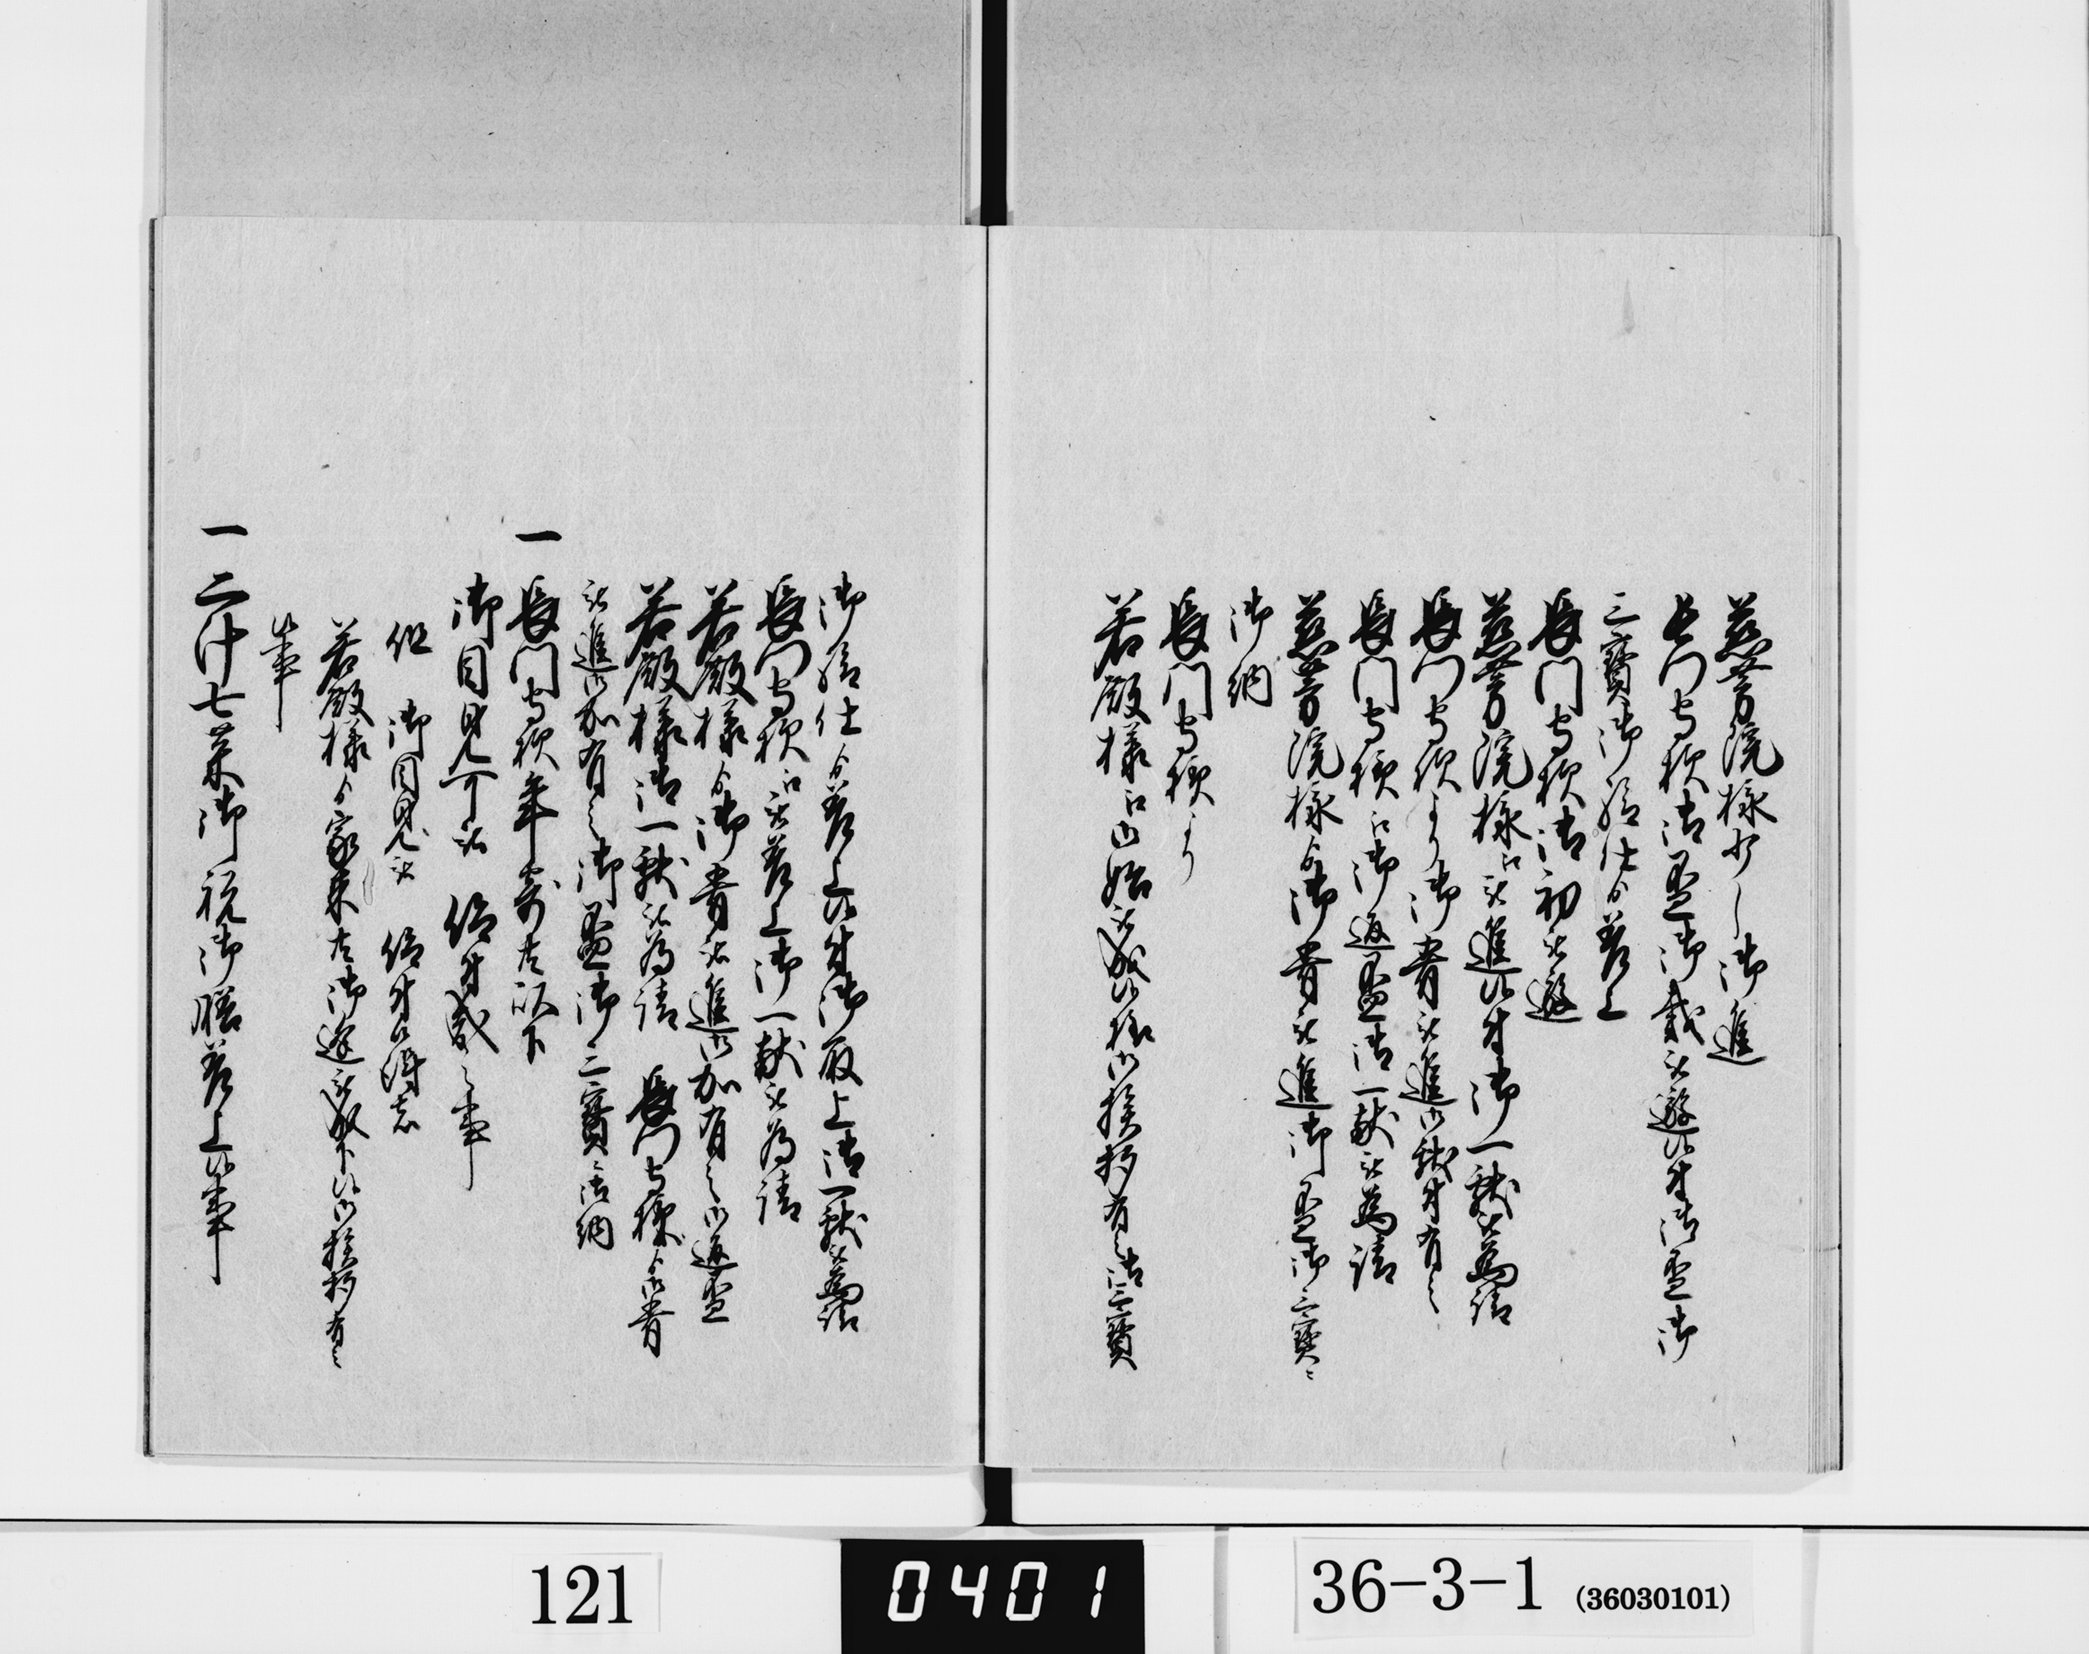 慈芳院様 御進
長門守様御盃御戴被遊候付御盃御
三寶御給仕ゟ差上
長門守様御初被遊
慈芳院様江被進候付御一献被為請
長門守様より御肴被進御献付有之
長門守様江御返盃御一献被為請
慈芳院様ゟ御肴被進御盃御三寶ニ
御納
長門守様より
若殿様江御始被成候様御挨拶有之御三寶
御給仕ゟ差上候付御取上御一献被為請
長門守様江被差上御一献被為請
若殿様ゟ御肴被進御加有之御返盃
若殿様御一献被為請 長門守様ゟ御肴
被進御加有之御盃御三寶ニ御納
一 長門守様年寄共以下
御目見可被 仰付哉之事
但 御目見被 仰付候得者
若殿様ゟ家来共御逢被成下候御挨拶有之
候事
一 二汁七菜御祝御膳差上候事
121
0401
36-3-1 (36030101)